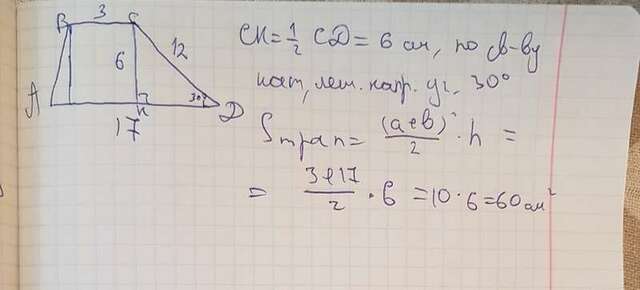 B 3 C
6 12
A K 30° D
17
CK = 1/2 CD = 6 см, по св-ву
кат, леж. напр. уг. 30°
Sтрап = (a+b)/2 · h =
= 3+17/2 · 6 = 10 · 6 = 60 см²